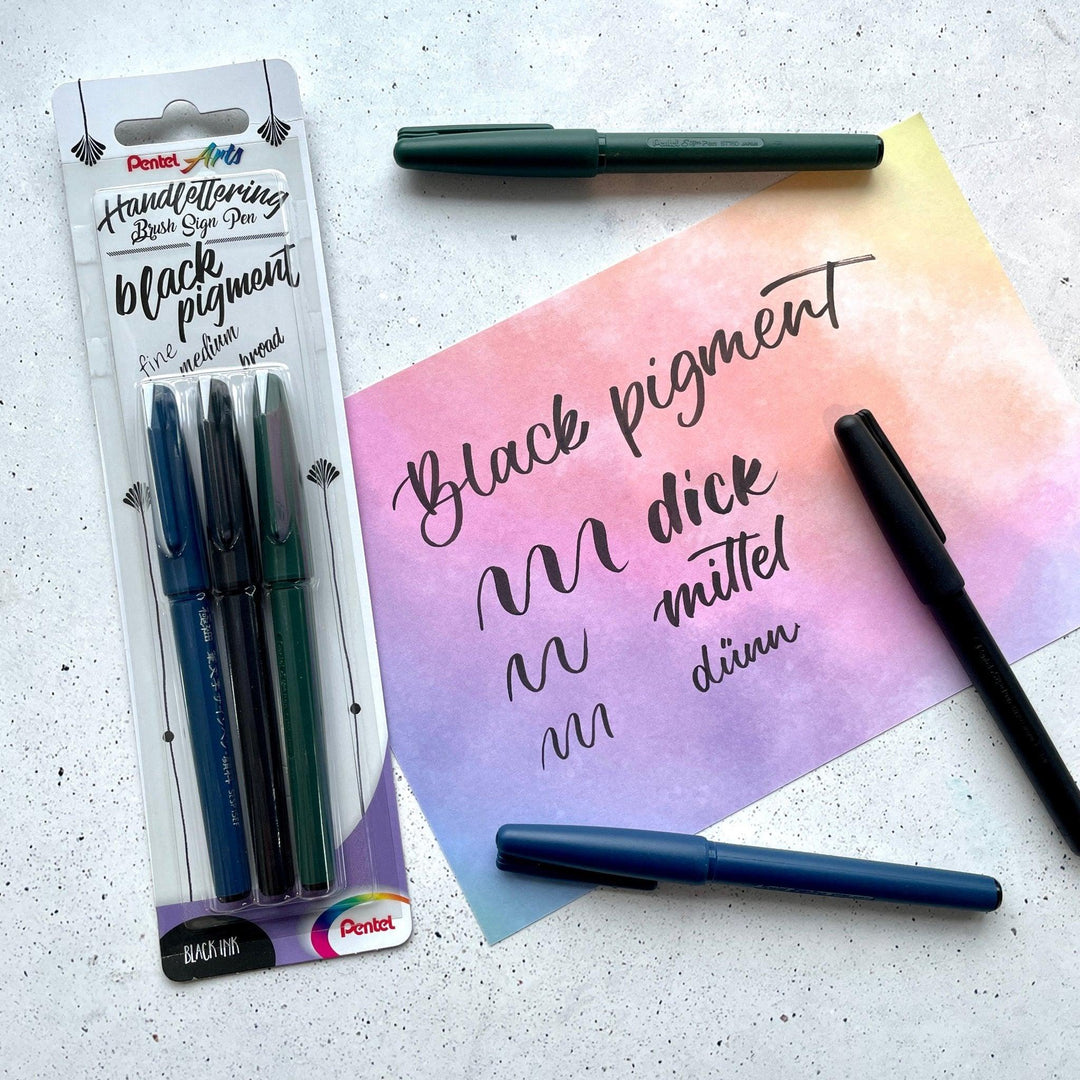 Pentel Arts
Handlettering
Brush Sign Pen
black
pigment
fine
medium
broad
BLACK INK
Pentel
Pentel Sign Pen
JAPAN
Black pigment
dick
mittel
dünn